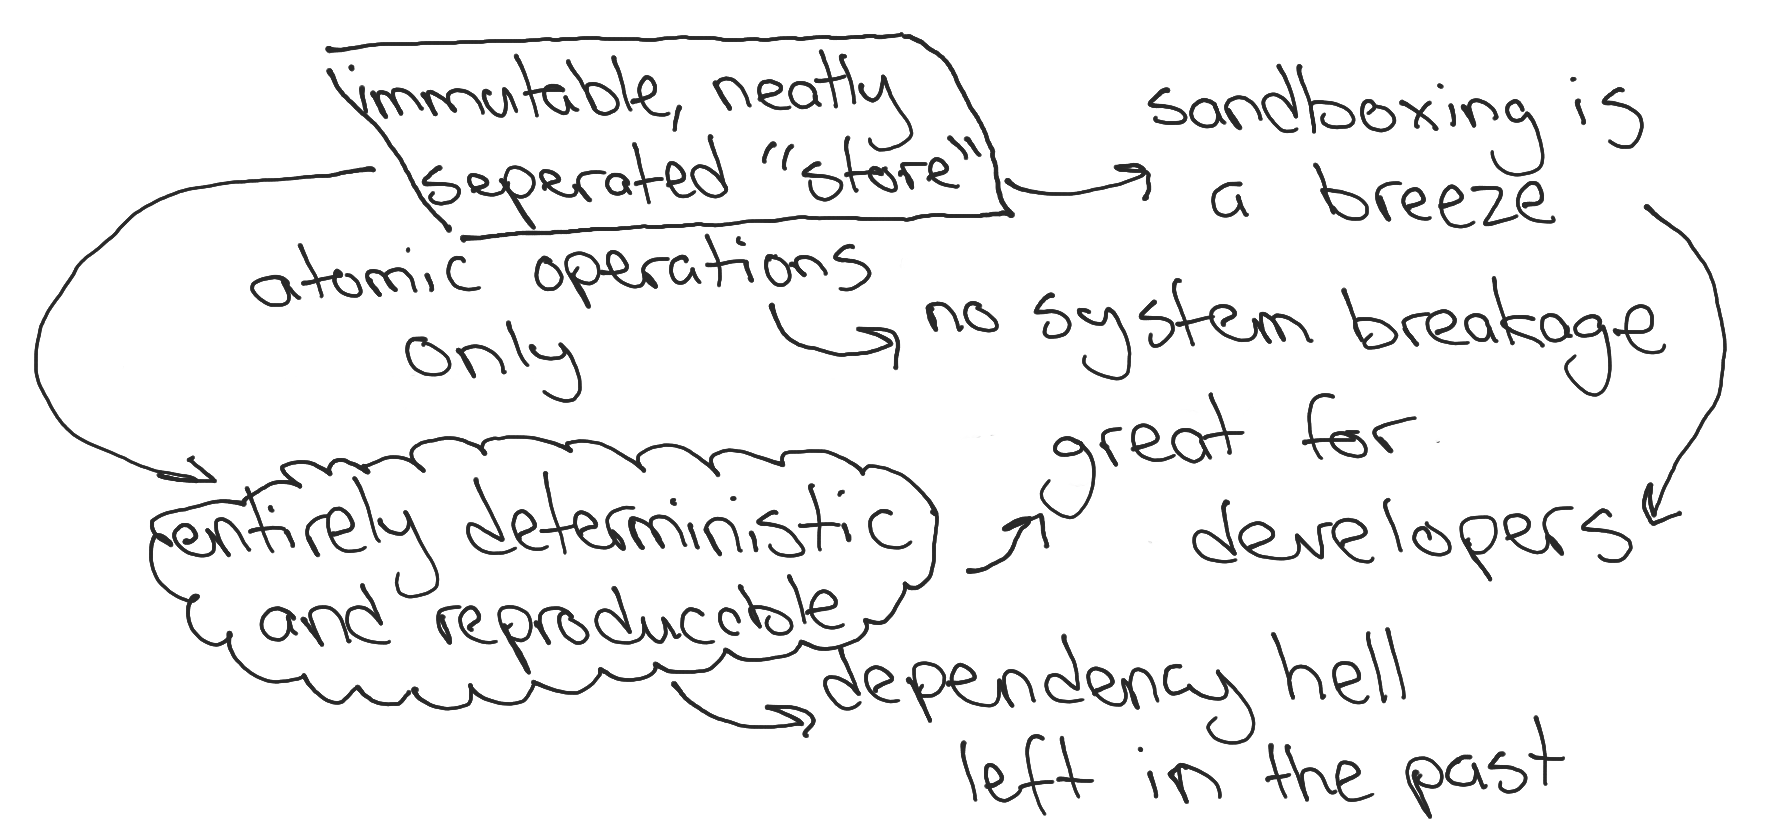 immutable, neatly
seperated "store"
sandboxing is
a breeze
atomic operations
only
no system breakage
great for
developers
entirely deterministic
and reproducable
dependency hell
left in the past